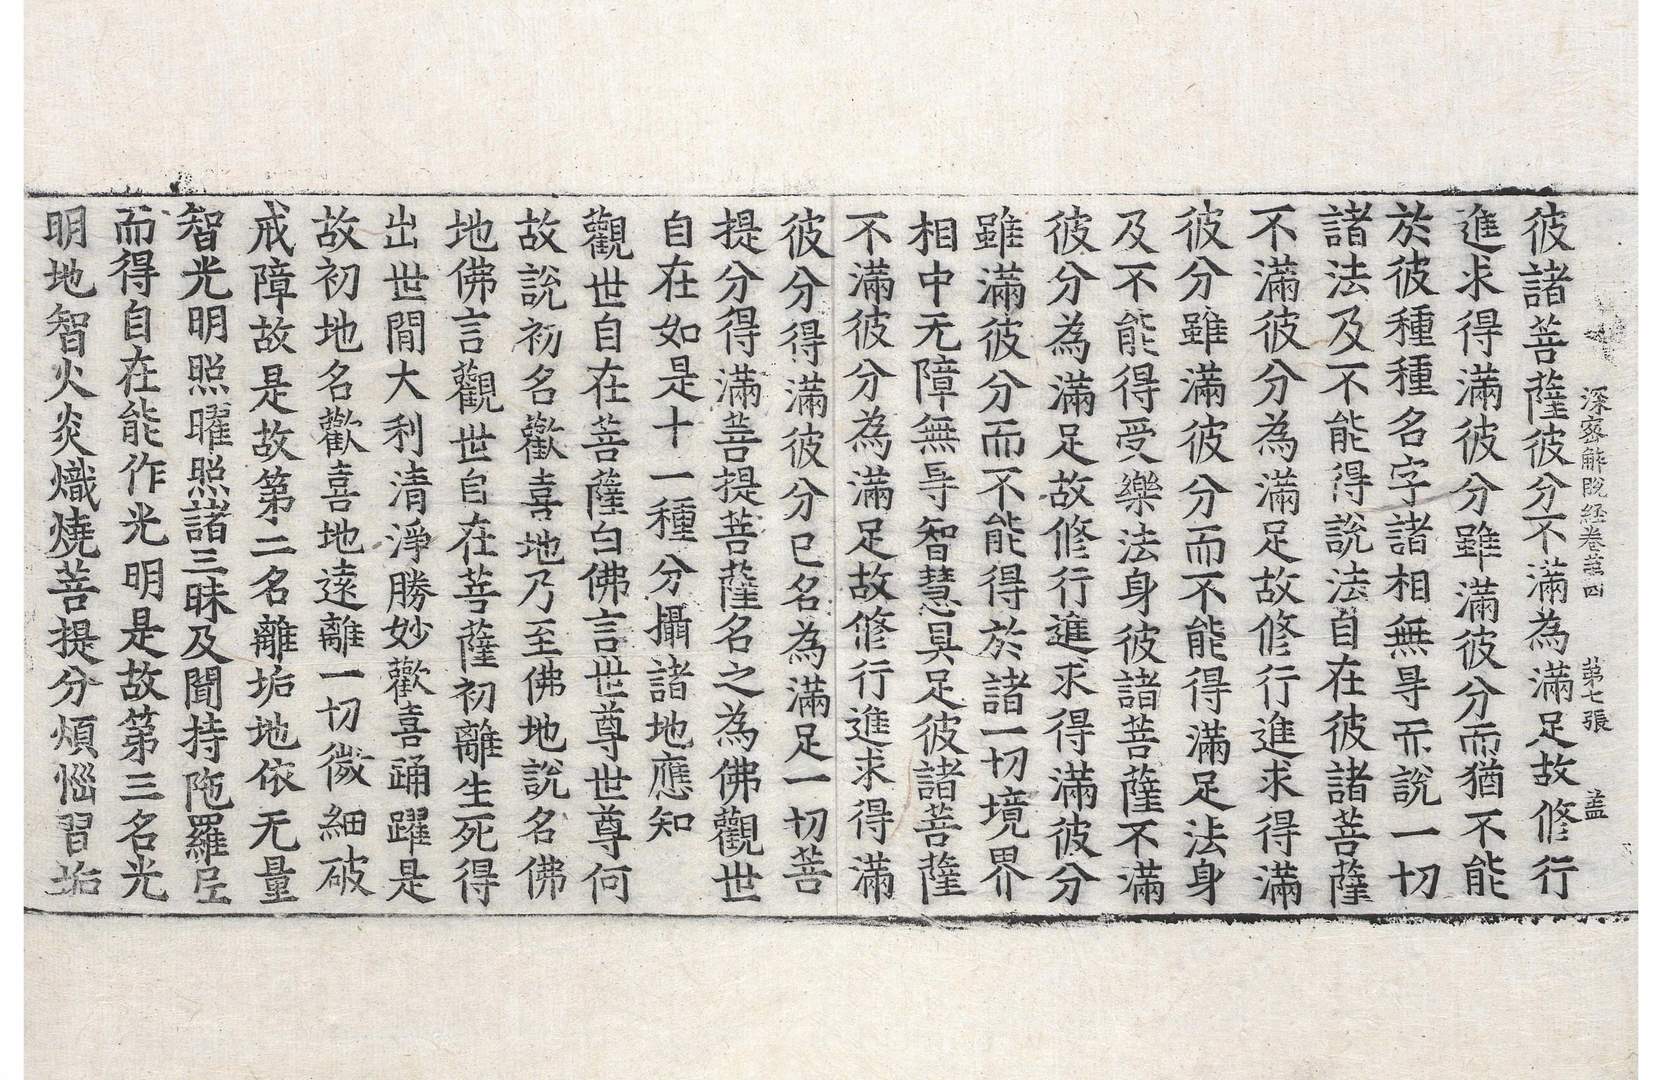 深密解脫經卷苐四　第七張　盖
彼諸菩薩彼分不滿為滿足故修行
進求得滿彼分雖滿彼分而猶不能
於彼種種名字諸相無㝵而說一切
諸法及不能得說法自在彼諸菩薩
不滿彼分為滿足故修行進求得滿
彼分雖滿彼分而不能得滿足法身
及不能得受樂法身彼諸菩薩不滿
彼分為滿足故修行進求得滿彼分
雖滿彼分而不能得於諸一切境界
相中无障無㝵智慧具足彼諸菩薩
不滿彼分為滿足故修行進求得滿
彼分得滿彼分已名為滿足一切菩
提分得滿菩提菩薩名之為佛觀世
自在如是十一種分攝諸地應知
觀世自在菩薩白佛言世尊世尊何
故說初名歡喜地乃至佛地說名佛
地佛言觀世自在菩薩初離生死得
出世間大利清淨勝妙歡喜踊躍是
故初地名歡喜地遠離一切微細破
戒障故是故第二名離垢地依无量
智光明照曜照諸三昧及聞持陁羅尼
而得自在能作光明是故第三名光
明地智火炎熾燒菩提分煩惱習垢